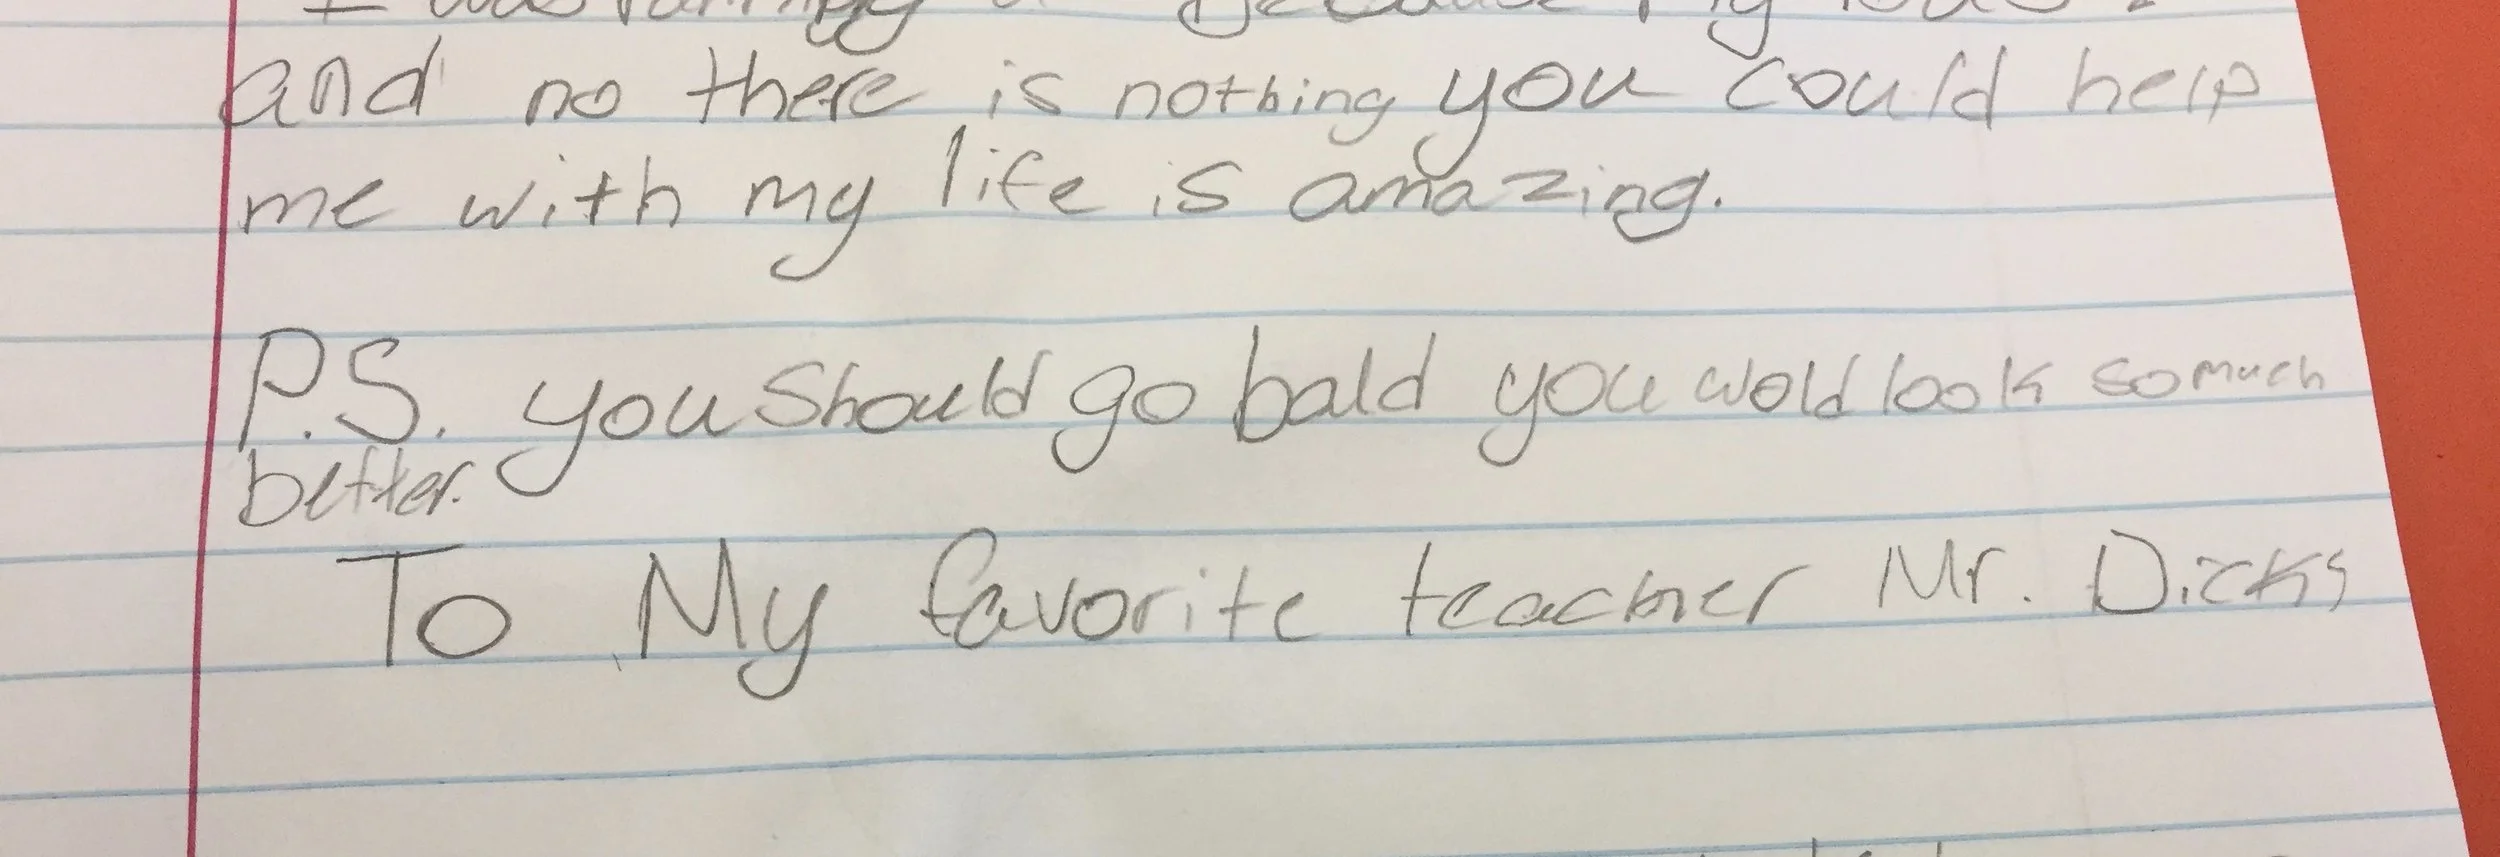 and no there is nothing you could help
me with my life is amazing.
P.S. you should go bald you wold look so much
better.
To My favorite teacher Mr. Dicks